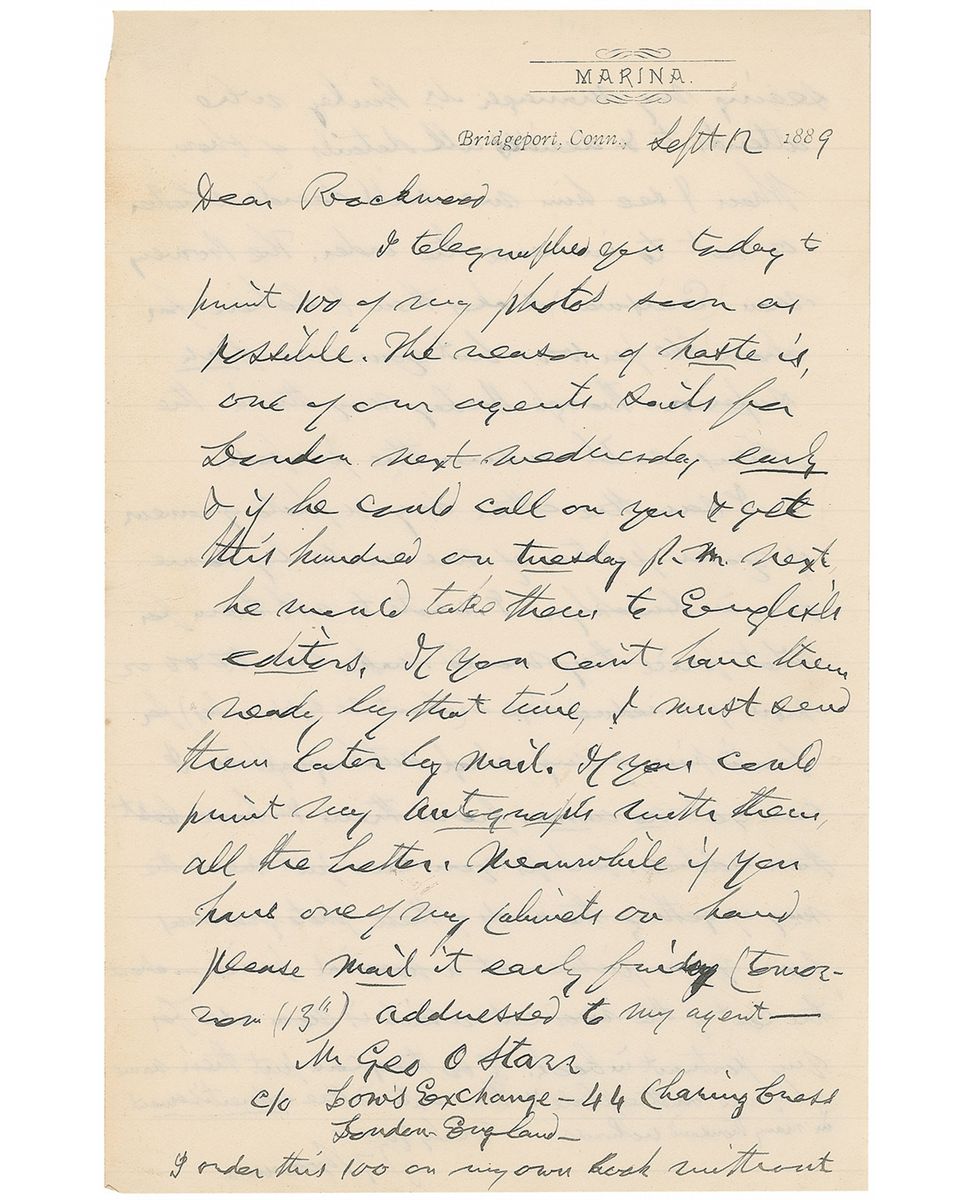 MARINA.
Bridgeport, Conn., Sept 12 1889
Dear Rockwood
I telegraphed you today to
print 100 of my photos soon as
possible. The reason of haste is,
one of our agents sails for
London next wednesday early
& if he could call on you & get
this hundred on tuesday P. M. next
he would take them to English
editors. If you can't have them
ready by that time, I must send
them later by mail. If you could
print my autograph with them,
all the better. Meanwhile if you
have one of my Cabinets on hand
please mail it early friday (tomor-
row (13th) addressed to my agent —
Mr Geo O Starr
c/o Low's Exchange – 44 Charing Cross
London England –
I order this 100 on my own hook without